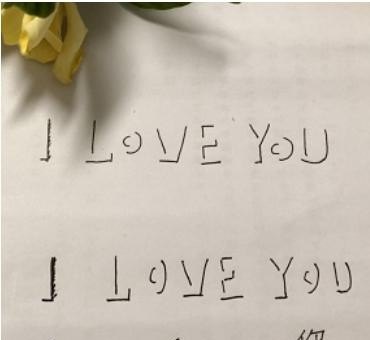 I LOVE YOU
I LOVE YOU